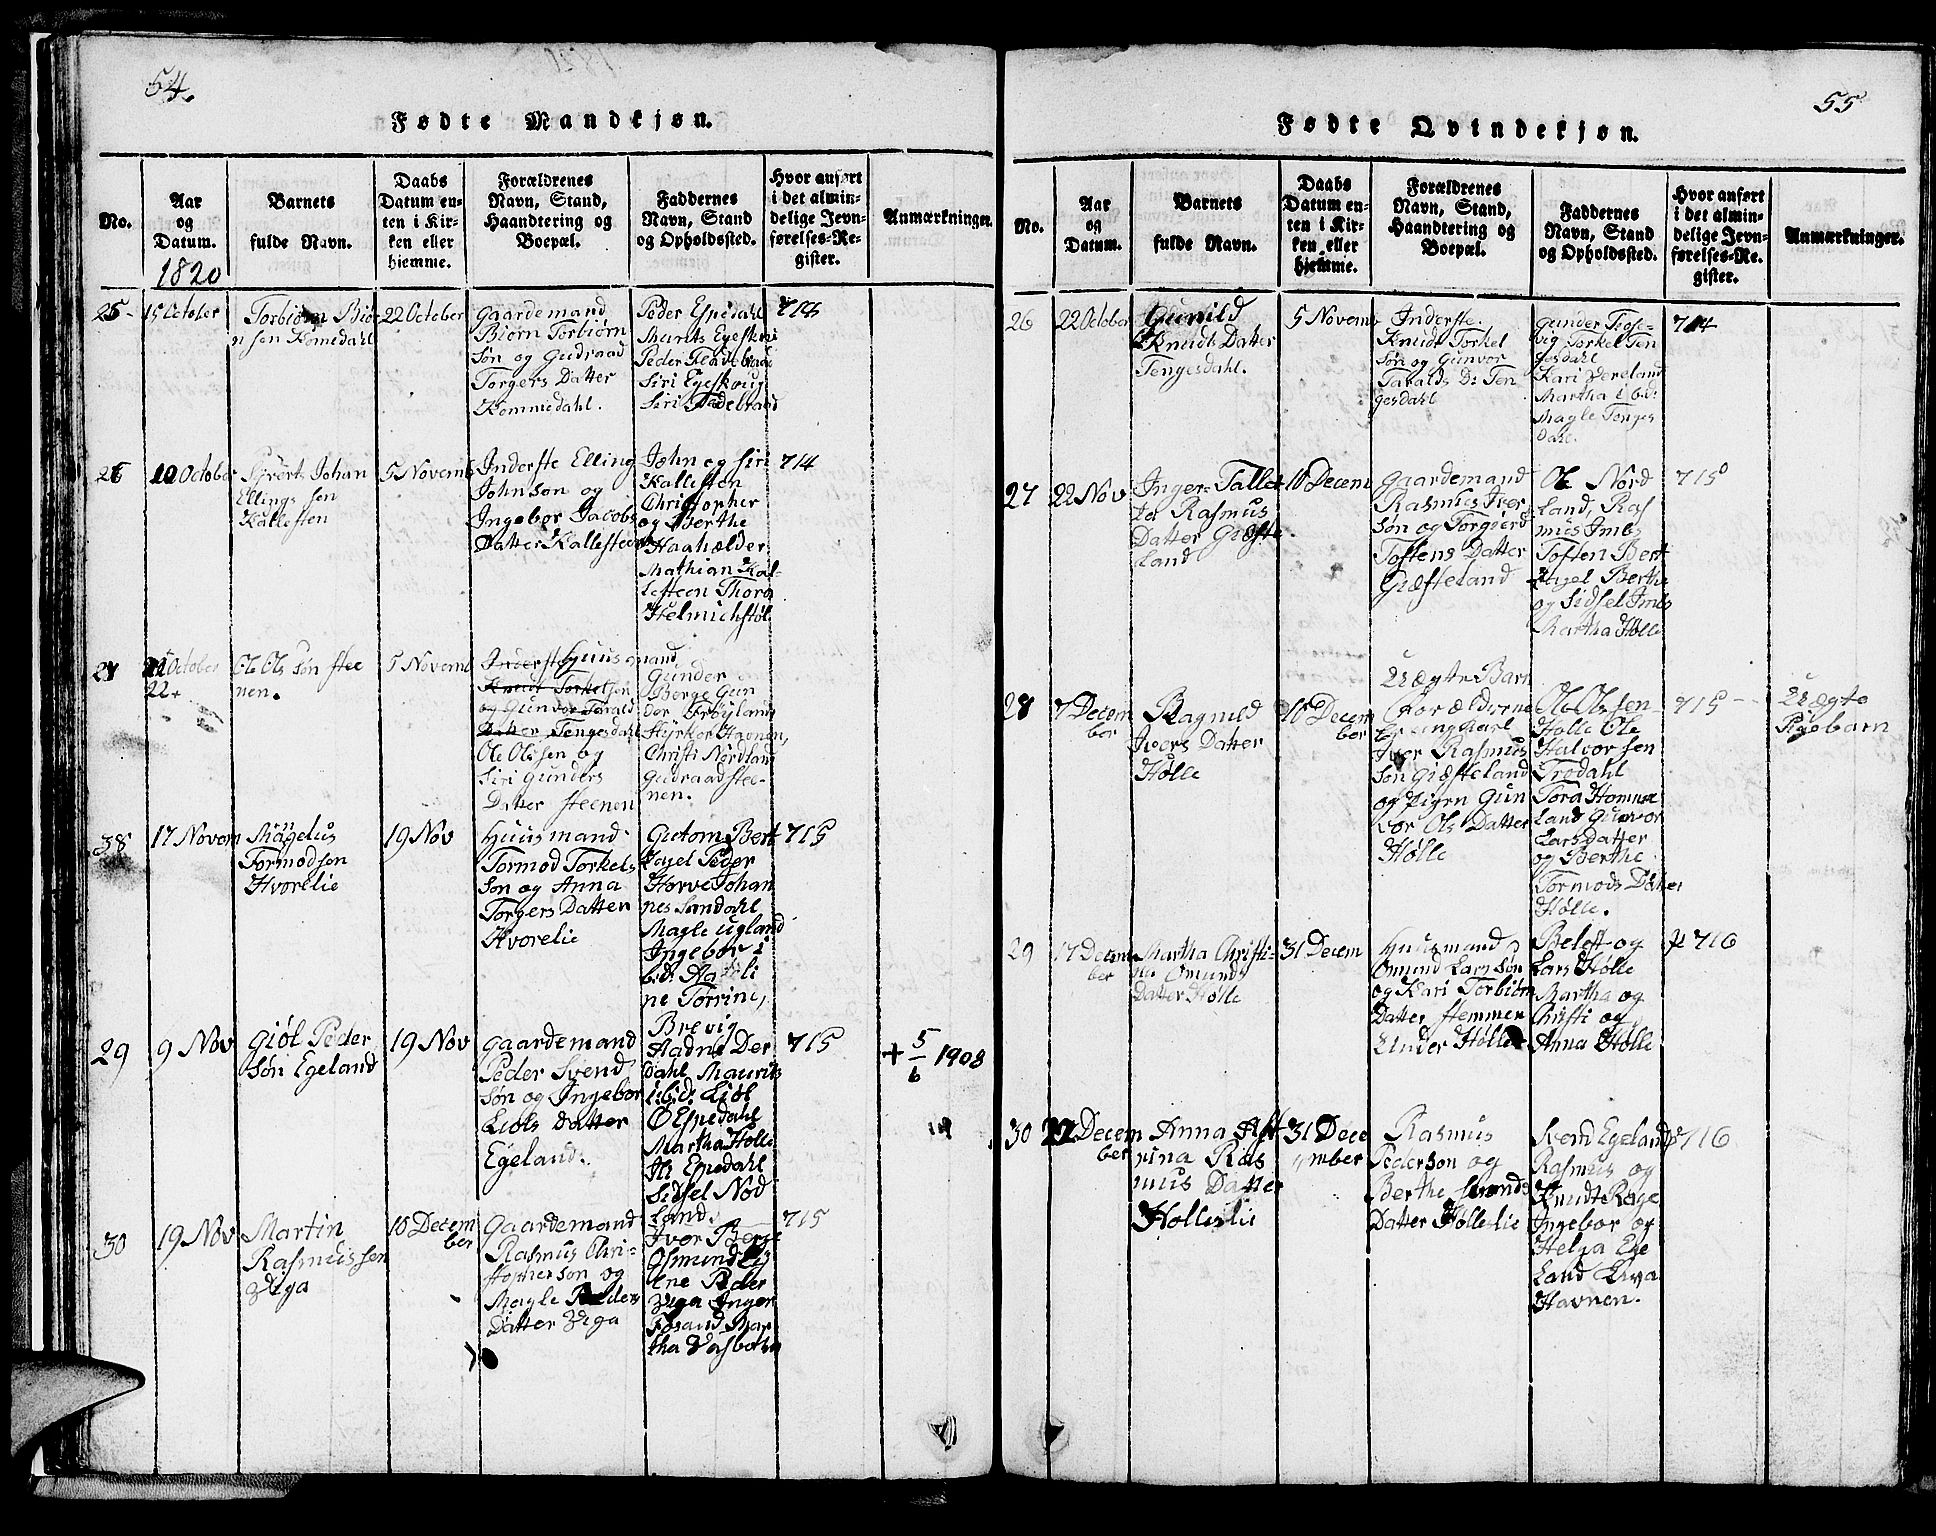 54.
Fødte Mandkjøn.
No.
Aar
og
Datum.
1820
Barnets
fulde Navn.
Daabs
Datum en-
ten i Kir-
ken eller
hjemme.
Forældrenes
Navn, Stand,
Haandtering og
Boepæl.
Faddernes
Navn, Stand
og Opholdssted.
Hvor anført
i det almin-
delige Jevn-
førelses-Re-
gister.
Anmærkninger.
25
15 October
Torbiørn Biø
n sen Komedahl
22 October
Gaardemand
Biørn Torbiørn
Søn og Gudraad
Torgers Datter
Kommedahl.
Peder Espedahl
Siri Egeskoug
714
26
October
Johan
Ellings sen
Kallesten
5 Novemb
Inderste Elling
John Søn og
Ingebor Jacobs
Datter
John og Siri
Kallesten
Christopher
og Berthe
Haahælder
Mathian Kal-
lesteen Thora
Helmichstøl
714
October
22
Ole Ols Søn Stee
nen.
5 Novemb
Inderste Huusmand
Knud Torkelsen
og Gunvor Tarald
Datter Tengesdahl
Ole Olssen og
Siri Gunders
Datter Steenen
Gunder
Børge Gun
der Frøyland
Styrkor Havnen,
Christi Nordland
Gudraad Stee-
nen.
38
17 Novem
Magelus
Tormodsen
Hvorelie
19 Nov
Huusmand
Tormod Torkels
Søn og Anna
Torgers Datter
Hvorelie
Gutom Bert
Peder
Horve Johan
nes Sandahl
Magle Ugland
Ingebor i
bid:
ne Torrine,
715
29
9 Nov
Giøl Peder
Søn Egeland
19 Nov
Gaardemand
Peder Svend
Søn og Ingebor
Liols Datter
Egeland.
Brevig
Aadne Der
dahl Maurits
i:bid: Liøl
Espedahl
Martha Holle
Espedahl
Sidsel Nod
land.
715
+ 5/6 1908
30
19 Nov
Martin
Rasmussen
Viga
10 Decem
ber
Gaardemand
Rasmus Chri-
stopher Søn og
Magle Peders
Datter Viga
Ivor Berg
Osmund
Ene Peder
Viga Inger
Fosand Mar
tha Vasbotten
715
55
Fødte Qvindekjøn.
No.
Aar
og
Datum.
Barnets
fulde Navn.
Daabs
Datum en-
ten i Kir-
ken eller
hjemme.
Forældrenes
Navn, Stand,
Haandtering og
Boepæl.
Faddernes
Navn, Stand
og Opholdssted.
Hvor anført
i det almin-
delige Jevn-
førelses-Re-
gister.
Anmærkninger.
26
22 October
Gunild
Knudts Datter
Tengesdahl.
5 Novemb
Inderste
Knudt Torkel
Søn og Gunvor
Taralds D: Ten
gesdahl
Gunder
vig Torkel Ten
gesdahl
Kari Vereland
Martha i bd:
Magle Tenges
dahl.
714
27
22 Nov
Inger Talle
Rasmus
Datter Giæste
land
10 Decem
Gaardemand
Rasmus Iver
Søn og Torgierd
Tostens Datter
Giæsteland
Ole Nord
land, Ras
mus Imbs
Tosten Bert
Berthe
og Sidsel Imbs
Martha Hølle
715
28
7 Decem
ber
Ragnild
Ivers Datter
Hølle
10 Decem
ber
Uægte Barn
Forældrene
Er ungkarl
Iver Rasmus
Søn Giæsteland
og Pigen Gun
vor Ols Datter
Hølle
Ole Olssen
Hølle Ole
Halvor sen
Trodahl
Tora Homme
land Gunvor
Larsdatter
og Berthe
Tormods Datter
Hølle.
715
Uægte
Pigebarn
29
17 Decem
ber
Martha Christi-
ne Omunds
Datter Hølle
31 Decem
Huusmand
Omund Larssøn
og Kari Torbiørn
Datter Stemmen
Under Hølle
Belest og
Lars Hølle
Martha og
Christi og
Anna Hølle
p 716
30
Decem
ber
Anna
Ras
mus Datter
Hølleslie
31 Dece
mber
Rasmus
Pedersøn og
Berthe Svends
Datter Hølleslie
Svend Egeland
Rasmus og
Knudt Rage
Ingebor og
Helga Ege
land Liva
Havnen.
p 716